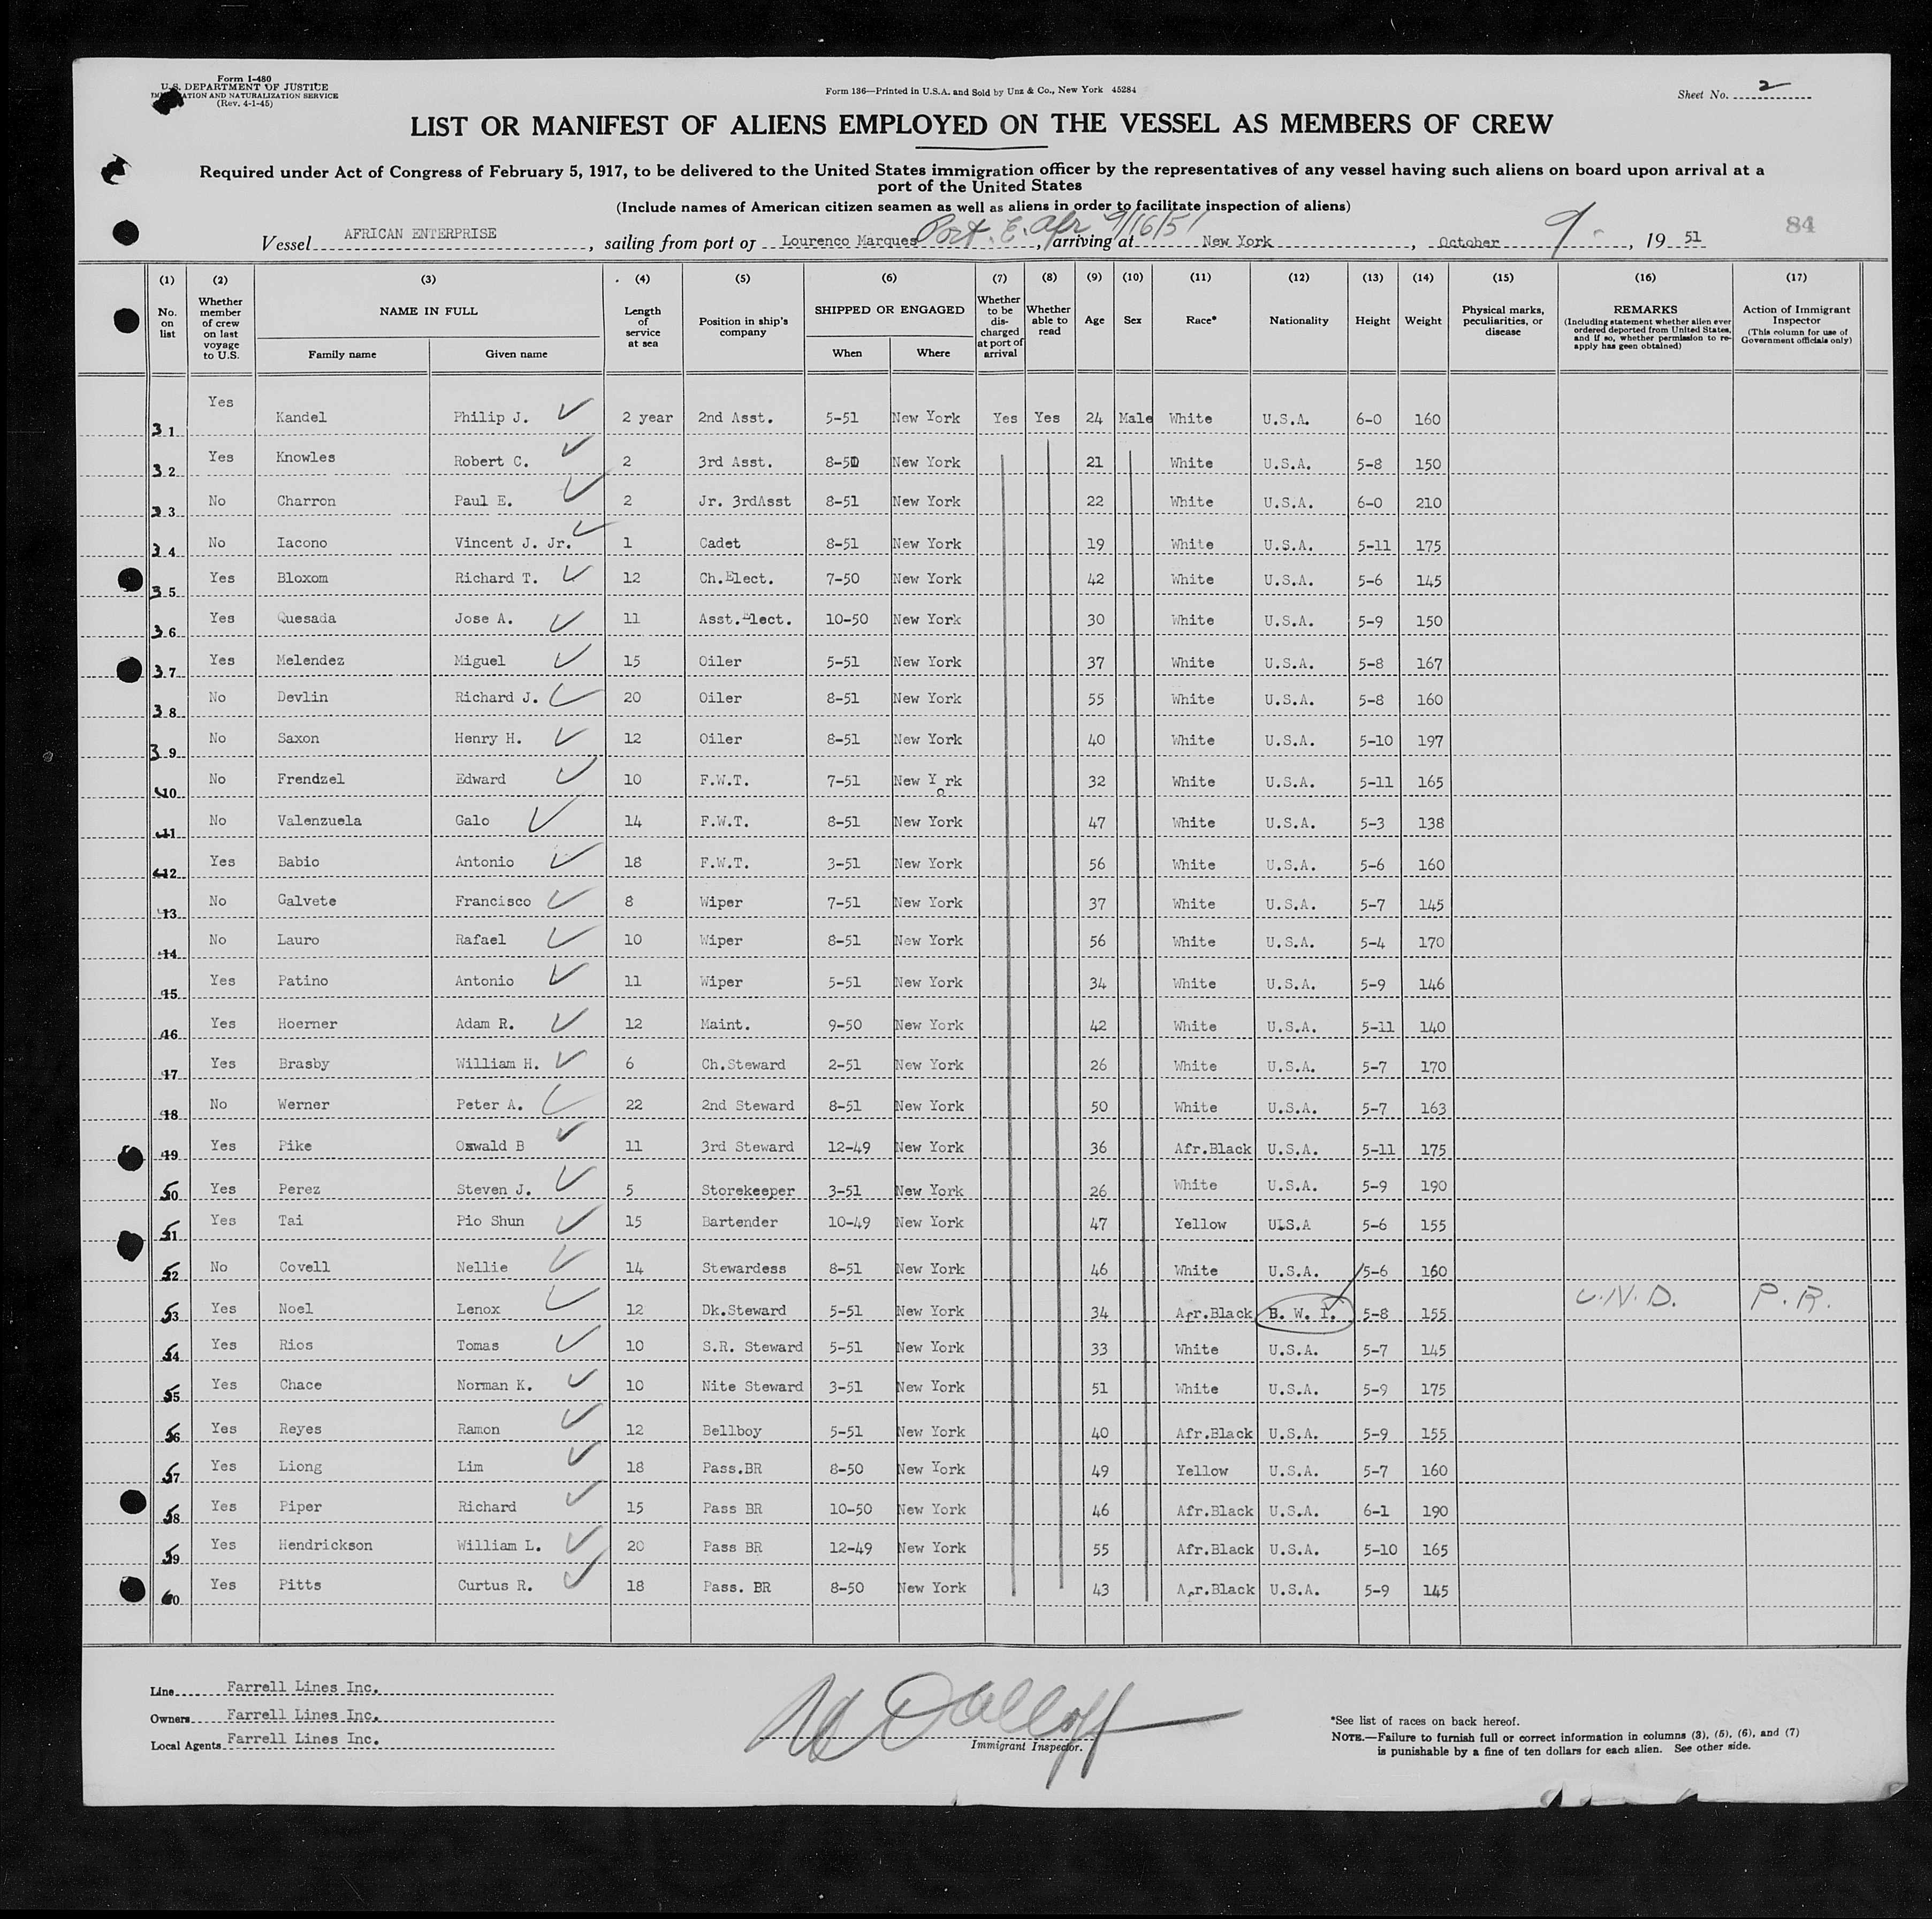 Form I-480
U.S. DEPARTMENT OF JUSTICE
IMMIGRATION AND NATURALIZATION SERVICE
(Rev. 4-1-45)
Form 136—Printed in U.S.A. and Sold by Unz & Co., New York 45284
Sheet No. 2
LIST OR MANIFEST OF ALIENS EMPLOYED ON THE VESSEL AS MEMBERS OF CREW
Required under Act of Congress of February 5, 1917, to be delivered to the United States immigration officer by the representatives of any vessel having such aliens on board upon arrival at a
port of the United States
(Include names of American citizen seamen as well as aliens in order to facilitate inspection of aliens)
Vessel AFRICAN ENTERPRISE, sailing from port of Lourenco Marques Port. E. Afr 9/16/51, arriving at New York, October 9, 19 51
84
(1) (2) (3) (4) (5) (6) (7) (8) (9) (10) (11) (12) (13) (14) (15) (16) (17)
No. on list
Whether member of crew on last voyage to U.S.
NAME IN FULL
Family name
Given name
Length of service at sea
Position in ship's company
SHIPPED OR ENGAGED
When
Where
Whether to be discharged at port of arrival
Whether able to read
Age
Sex
Race*
Nationality
Height
Weight
Physical marks, peculiarities, or disease
REMARKS
(Including statement whether alien ever ordered deported from United States, and if so, whether permission to re-apply has geen obtained)
Action of Immigrant Inspector
(This column for use of Government officials only)
31 Yes Kandel Philip J. 2 year 2nd Asst. 5-51 New York Yes Yes 24 Male White U.S.A. 6-0 160
32 Yes Knowles Robert C. 2 3rd Asst. 8-50 New York 21 White U.S.A. 5-8 150
33 No Charron Paul E. 2 Jr. 3rdAsst 8-51 New York 22 White U.S.A. 6-0 210
34 No Iacono Vincent J. Jr. 1 Cadet 8-51 New York 19 White U.S.A. 5-11 175
35 Yes Bloxom Richard T. 12 Ch.Elect. 7-50 New York 42 White U.S.A. 5-6 145
36 Yes Quesada Jose A. 11 Asst.Elect. 10-50 New York 30 White U.S.A. 5-9 150
37 Yes Melendez Miguel 15 Oiler 5-51 New York 37 White U.S.A. 5-8 167
38 No Devlin Richard J. 20 Oiler 8-51 New York 55 White U.S.A. 5-8 160
39 No Saxon Henry H. 12 Oiler 8-51 New York 40 White U.S.A. 5-10 197
40 No Frendzel Edward 10 F.W.T. 7-51 New York 32 White U.S.A. 5-11 165
41 No Valenzuela Galo 14 F.W.T. 8-51 New York 47 White U.S.A. 5-3 138
42 Yes Babio Antonio 18 F.W.T. 3-51 New York 56 White U.S.A. 5-6 160
43 No Galvete Francisco 8 Wiper 7-51 New York 37 White U.S.A. 5-7 145
44 No Lauro Rafael 10 Wiper 8-51 New York 56 White U.S.A. 5-4 170
45 Yes Patino Antonio 11 Wiper 5-51 New York 34 White U.S.A. 5-9 146
46 Yes Hoerner Adam R. 12 Maint. 9-50 New York 42 White U.S.A. 5-11 140
47 Yes Brasby William H. 6 Ch.Steward 2-51 New York 26 White U.S.A. 5-7 170
48 No Werner Peter A. 22 2nd Steward 8-51 New York 50 White U.S.A. 5-7 163
49 Yes Pike Oswald B 11 3rd Steward 12-49 New York 36 Afr.Black U.S.A. 5-11 175
50 Yes Perez Steven J. 5 Storekeeper 3-51 New York 26 White U.S.A. 5-9 190
51 Yes Tai Pio Shun 15 Bartender 10-49 New York 47 Yellow U.S.A 5-6 155
52 No Covell Nellie 14 Stewardess 8-51 New York 46 White U.S.A. 5-6 160
53 Yes Noel Lenox 12 Dk.Steward 5-51 New York 34 Afr.Black B. W. I. 5-8 155 U.N.D. P.R.
54 Yes Rios Tomas 10 S.R. Steward 5-51 New York 33 White U.S.A. 5-7 145
55 Yes Chace Norman K. 10 Nite Steward 3-51 New York 51 White U.S.A. 5-9 175
56 Yes Reyes Ramon 12 Bellboy 5-51 New York 40 Afr.Black U.S.A. 5-9 155
57 Yes Liong Lim 18 Pass.BR 8-50 New York 49 Yellow U.S.A. 5-7 160
58 Yes Piper Richard 15 Pass BR 10-50 New York 46 Afr.Black U.S.A. 6-1 190
59 Yes Hendrickson William L. 20 Pass BR 12-49 New York 55 Afr.Black U.S.A. 5-10 165
60 Yes Pitts Curtus R. 18 Pass. BR 8-50 New York 43 Afr.Black U.S.A. 5-9 145
Line Farrell Lines Inc.
Owners Farrell Lines Inc.
Local Agents Farrell Lines Inc.
Immigrant Inspector.
*See list of races on back hereof.
NOTE.—Failure to furnish full or correct information in columns (3), (5), (6), and (7)
is punishable by a fine of ten dollars for each alien. See other side.